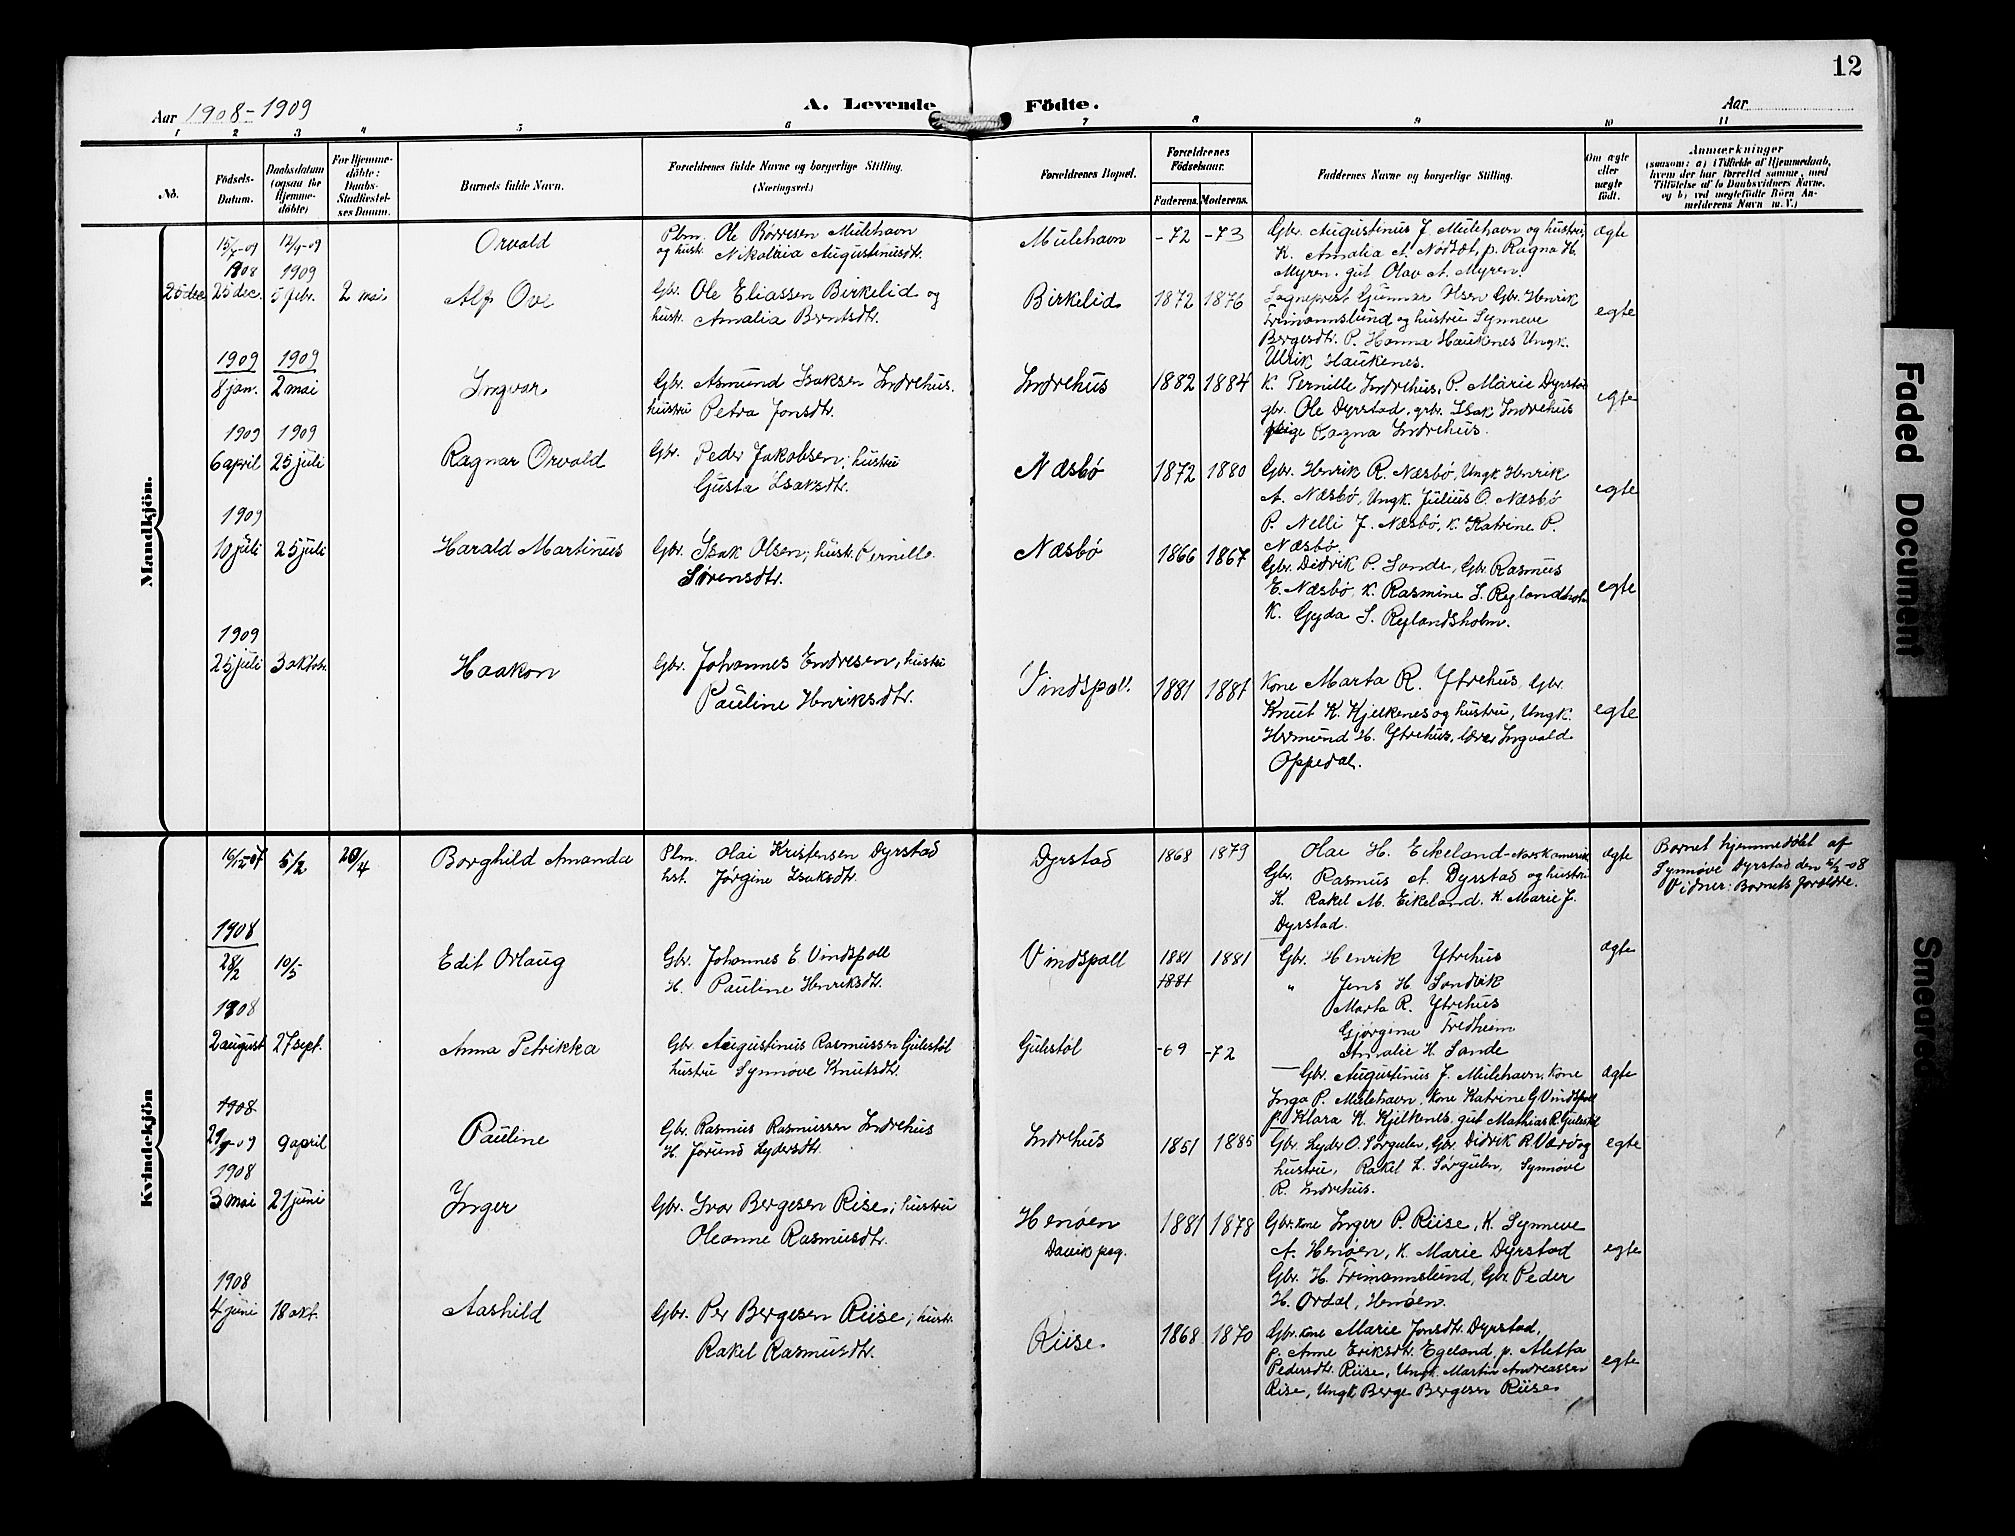 12
Aar 1908-1909
A. Levende Födte.
Aar
1 2 3 4 5 6 7 8 9 10 11
No.
Födsels-Datum.
Daabsdatum (ogsaa for Hjemme-döbte)
For Hjemme-döbte: Daabs-Stadfæstel-ses Datum.
Barnets fulde Navn.
Forældrenes fulde Navne og borgerlige Stilling. (Næringsvei.)
Forældrenes Bopæl.
Forældrenes Födselsaar.
Faderens. Moderens.
Faddernes Navne og borgerlige Stilling.
Om ægte eller uægte födt.
Anmærkninger
(saasom: a) i Tilfælde af Hjemmedaab,
hvem der har forrettet samme, med
Tilföielse af to Daabsvidners Navne,
og b) ved uægtefödte Börn An-
melderens Navn m. V.)
Mandkjön.
15/7-09 12/9-09 Orvald
Plm. Ole Börresen Mulehavn
og hustr. Nikolaia Augustinusdtr.
Mulehavn -72 -73
Gbr. Augustinus J. Mulehavn og hustru,
K. Amalia A. Nordböt, p. Ragna H.
Myren. gut Olav A. Myren.
ægte
1908 1909
25 dec. 25 dec. 5 febr. 2 mai Alf Ove
Gbr. Ole Eliassen Birkelid og
hustr. Amalia Berntsdtr.
Birkelid 1872 1876
Sogneprest Gunnar Olsen Gbr. Henrik
Frimannslund og hustru Synneve
Bergesdtr. P. Hanna Haukenes Ungk.
Ulrik Haukenes.
egte
1909 1909
8 jan. 2 mai Ingvar
Gbr. Asmund Isaksen Indrehus.
hustru Petra Jonsdtr.
Indrehus 1882 1884
K. Pernille Indrehus, P. Marie Dyrstad
gbr. Ole Dyrstad, gbr. Isak Indrehus
pige Ragna Indrehus.
egte
1909 1909
6 april 25 juli Ragnar Orvald
Gbr. Peder Jakobsen; hustru
Gusta Isaksdtr.
Næsbö 1872 1880
Gbr. Henrik R. Næsbö, Ungk. Henrik
A. Næsbö, Ungk. Julius O. Næsbö
P. Nelli J. Næsbö, K. Katrine P.
Næsbö.
egte
1909
10 juli 25 juli Harald Martinus
Gbr. Isak Olsen; hustr. Pernille
Sörensdtr.
Næsbö 1866 1867
Gbr. Didrik P. Sande, Gbr. Rasmus
E. Næsbö, K. Rasmine S. Rylandsholm
K. Gyda S. Rylandsholm.
egte
1909
25 juli 3 oktobr. Haakon
Gbr. Johannes Endresen, hustru
Pauline Henriksdtr.
Vindspoll. 1881 1881
Kone Marta R. Ytrehus, Gbr.
Knut K. Kjelkenes og hustru, Ungk.
Hermund H. Ytrehus, lærer Ingvald
Oppedal.
egte
Kvindekjön
5/2 Borghild Amanda
Plm. Olai Kristensen Dyrstad
hst. Jörgine Isaksdtr.
Dyrstad 1868 1879
Olai H. Eikeland - Norsk amerik
Gbr. Rasmus A. Dyrstad og hustru
K. Rakel M. Eikeland. K. Marie J.
Dyrstad.
ægte
Barnet hjemmedöbt af
Synnöve Dyrstad den 5/2-08
Vidner: Barnets foreldre.
1908
28/2 10/5 Edit Olaug
Gbr. Johannes E Vindspoll
H. Pauline Henriksdtr.
Vindspoll 1881 1881
1881
Gbr. Henrik Ytrehus
" Jens H Sandvik
Marta R. Ytrehus
Gjörgine Fredheim
Amalie H. Sande
ægte
1908
2 august 27 sept. Anna Petrikka
Gbr Augustinus Rasmussen Gulestöl
hustru Synnöve Knutsdtr.
Gulestöl -69 -72
Gbr. Augustinus J. Mulehavn, kone
Inga P. Mulehavn, kone Katrine G. Vindspoll
p. Klara K. Kjelkenes, gut Mathias R. Gulestöl
ægte
1908
9 april Pauline
Gbr. Rasmus Rasmussen Indrehus
H. Jörund Lydersdtr.
Indrehus 1851 1885
Gbr. Lyder O. Sörgulen, Gbr. Didrik R. Værö og
hustru, Rakel L. Sörgulen, Synnöve
R. Indrehus.
egte
1908
3 mai 21 juni Inger
Gbr. Ivar Bergesen Riise; hustru
Oleanne Rasmusdtr.
Henöen
Davik pgj.
1881 1878
Gbr.kone Inger P. Riise, K. Synneve
A. Henöen, K. Marie Dyrstad
Gbr. H. Frimannslund, Gbr. Peder
H. Ordal, Henöen.
egte
1908
4 juni 18 okt. Aashild
Gbr. Per Bergesen Riise; hustr.
Rakel Rasmusdtr.
Riise. 1868 1870
Gbr. kone Marie Jonsdtr. Dyrstad,
p. Anne Eriksdtr. Egeland, p. Aletta
Pedersdtr. Riise, Ungk. Martin Andreassen
Riise, Ungk. Berge Bergesen Riise.
egte
Faded Document
Smeared